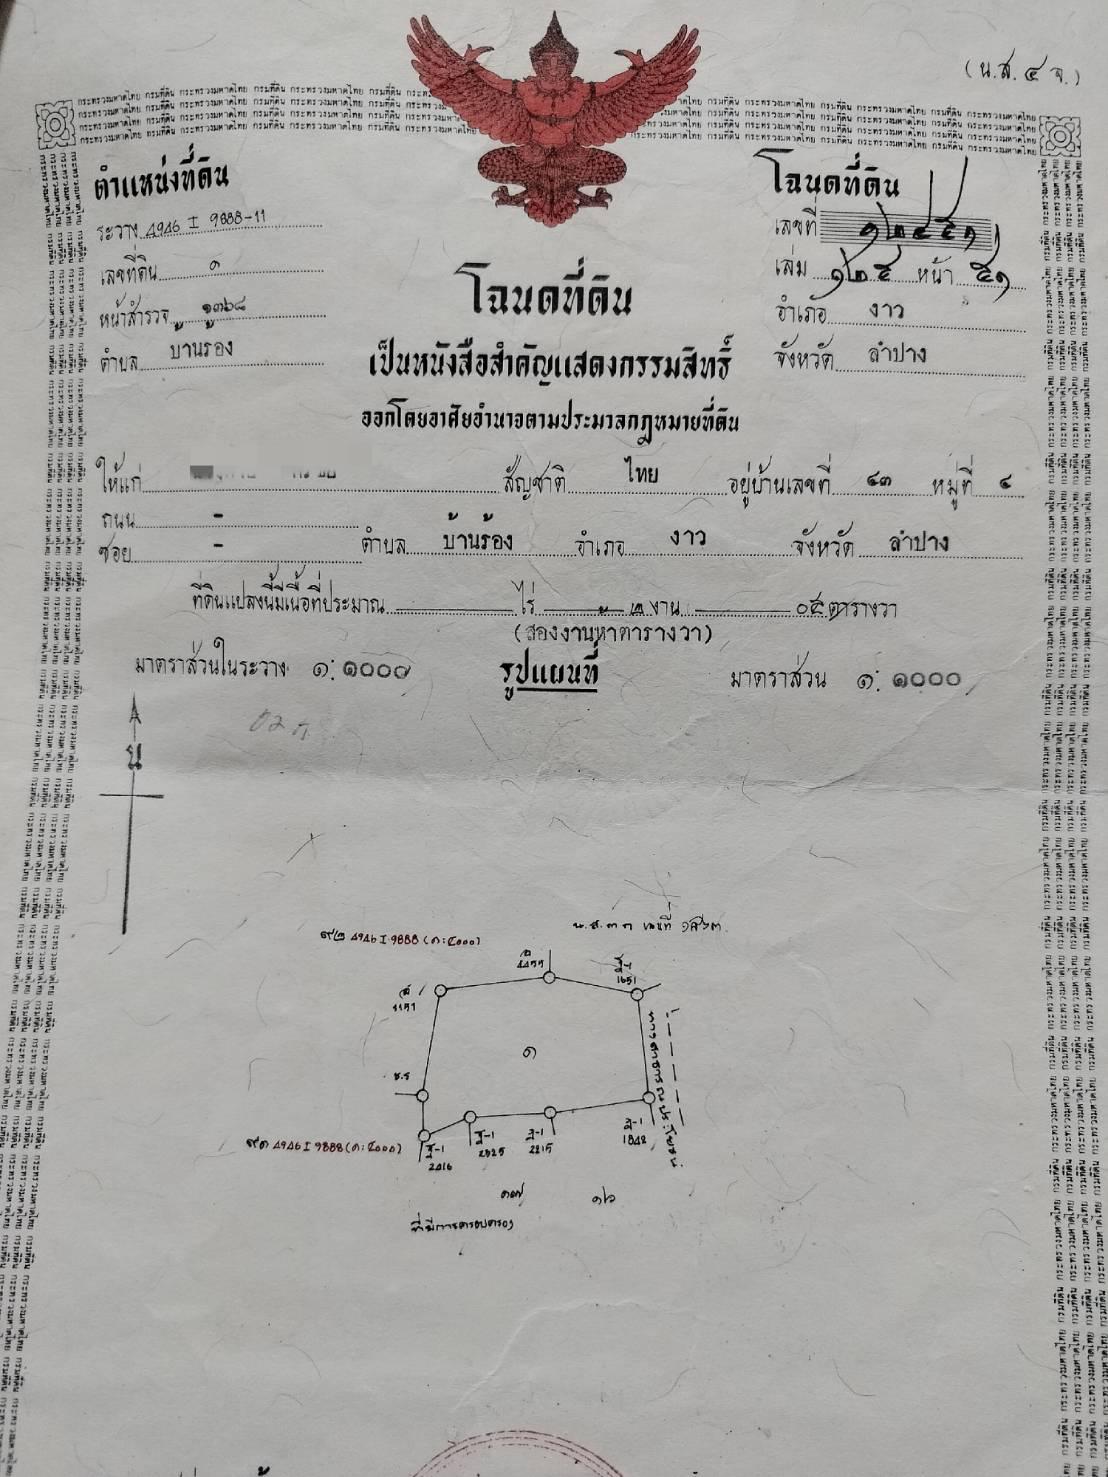 (น.ส. ๔ จ.)
ตำแหน่งที่ดิน
ระวาง 4946 I 9888-11
เลขที่ดิน ๑
หน้าสำรวจ ๑๓๖๘
ตำบล บ้านร้อง
โฉนดที่ดิน
เลขที่ ๑๒๔๕๑
เล่ม ๑๒๕ หน้า ๕๑
อำเภอ งาว
จังหวัด ลำปาง
โฉนดที่ดิน
เป็นหนังสือสำคัญแสดงกรรมสิทธิ์
ออกโดยอาศัยอำนาจตามประมวลกฎหมายที่ดิน
ให้แก่ สัญชาติ ไทย อยู่บ้านเลขที่ ๔๓ หมู่ที่ ๔
ถนน -
ซอย - ตำบล บ้านร้อง อำเภอ งาว จังหวัด ลำปาง
ที่ดินแปลงนี้มีเนื้อที่ประมาณ ไร่ ๒ งาน ๐๕ ตารางวา
(สองงานห้าตารางวา)
มาตราส่วนในระวาง ๑:๑๐๐๐ รูปแผนที่ มาตราส่วน ๑:๑๐๐๐
น
น.ส.๓ ก เลขที่
4946 I 9888 (๑:๕๐๐๐)
1651
๑
ทางสาธารณประโยชน์
4946 I 9888 (๑:๕๐๐๐)
2016
2525
2215
1842
๑๗ ๑๖
ที่มีการครอบครอง